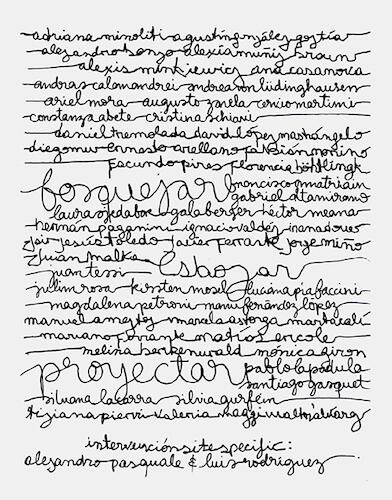 adriana minoliti agustín gzález goytía
alejandro bonzo alexía muñiz braun
alexis minkiewicz ana casanova
andras calamandrei andrea von lüdinghausen
ariel mora augusto zuela martini
constanza abete cristina schiavi
daniel tremolada david lópez mastrángelo
diego mur ernesto arellano fabián
facundo pires florencia böhtlingk
bosquejar francisco matriain
gabriel altamirano
laura ojeda bär gala berger héctor meana
hernán paganini ignacio valdéz
jesica toledo javier ferrante jorge miño
juan malka
juan tessi esbozar
julim rosa kirsten mosel luciana pia faccini
magdalena petroni manu fernández lópez
manuel ameztoy marcela astorga marta calí
mariano ferrante matías ercole
melina berkenwald mónica giron
proyectar pablo lapadula
santiago gasquet
silvana lacarra silvia gurfein
tiziana pierri valeria maggi walter álvarez
intervención site specific:
alejandro pasquale & luis rodríguez